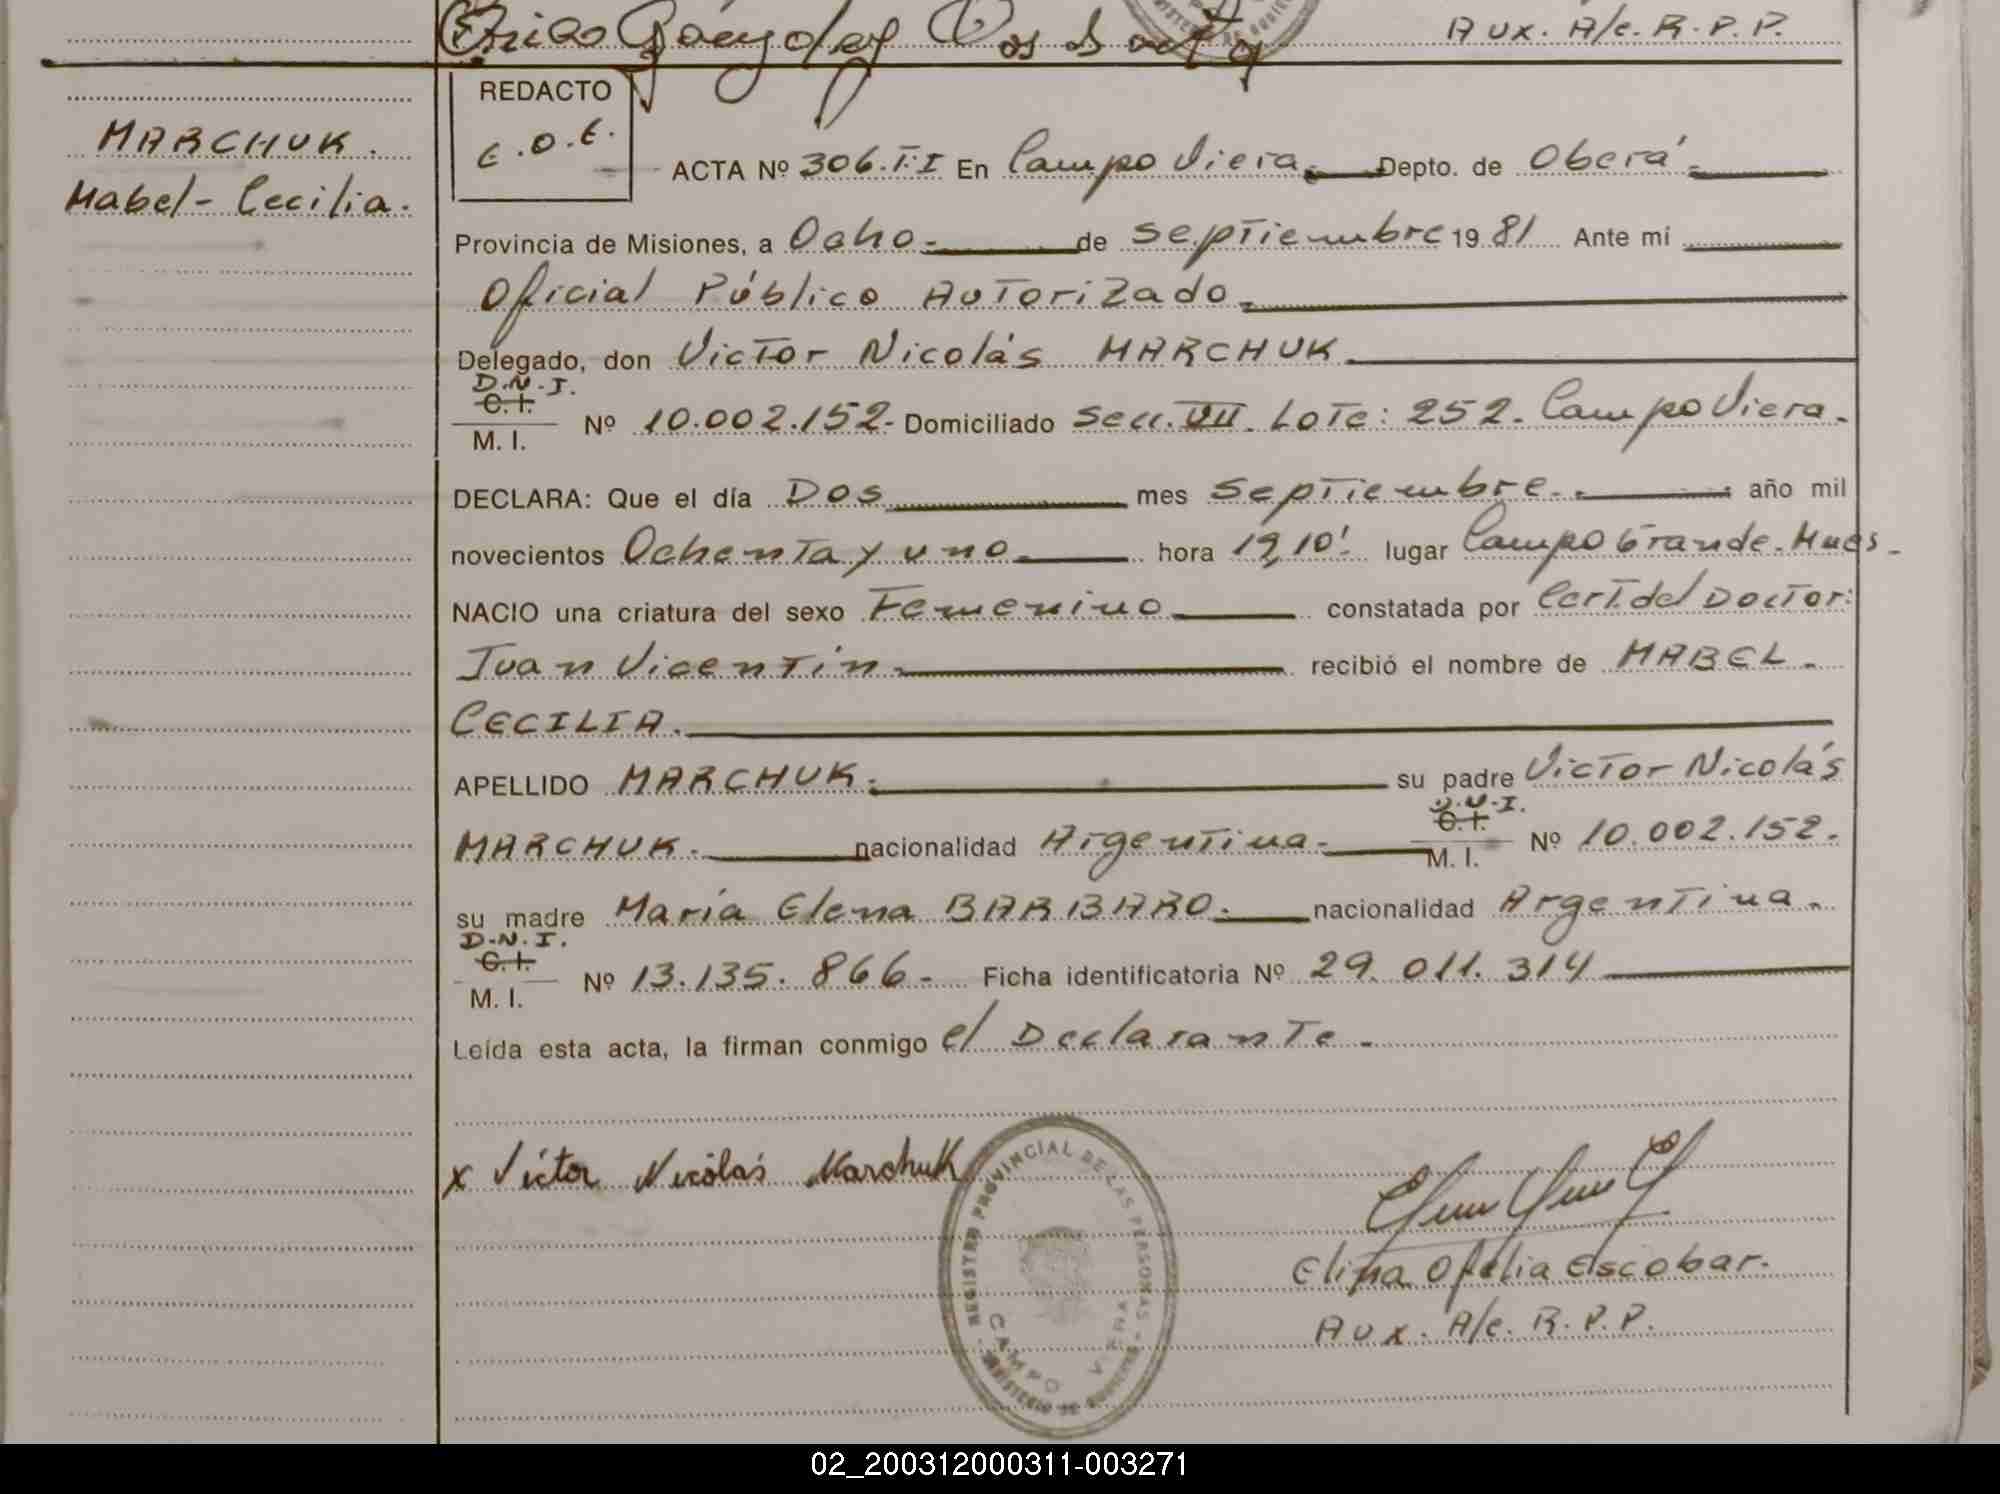 Aux. A/c. R.P.P.
MARCHUK.
Mabel - Cecilia.
REDACTO
E.O.E.
ACTA Nº 306.T.I En Campo Viera. Depto. de Oberá.
Provincia de Misiones, a Ocho. de septiembre 19 81 Ante mí
Oficial Público Autorizado.
Delegado, don Victor Nicolás MARCHUK.
D.N.I.
C.I.
M. I. Nº 10.002.152. Domiciliado Secc. VII. Lote: 252. Campo Viera.
DECLARA: Que el día Dos mes septiembre. año mil
novecientos Ochenta y uno. hora 19,10'. lugar Campo Grande. Mnes.
NACIO una criatura del sexo Femenino constatada por Cert. del Doctor:
Juan Vicentin. recibió el nombre de MABEL.
CECILIA.
APELLIDO MARCHUK. su padre Victor Nicolás
MARCHUK. nacionalidad Argentina.
D.N.I.
C.I.
M. I. Nº 10.002.152.
su madre María Elena BARBARO. nacionalidad Argentina.
D.N.I.
C.I.
M. I. Nº 13.135.866. Ficha identificatoria Nº 29.011.314
Leída esta acta, la firman conmigo el Declarante.
x Víctor Nicolás Marchuk
REGISTRO PROVINCIAL DE LAS PERSONAS
CAMPO VIERA
MINISTERIO DE GOBIERNO
Elina Ofelia Escobar.
Aux. A/c. R.P.P.
02_200312000311-003271